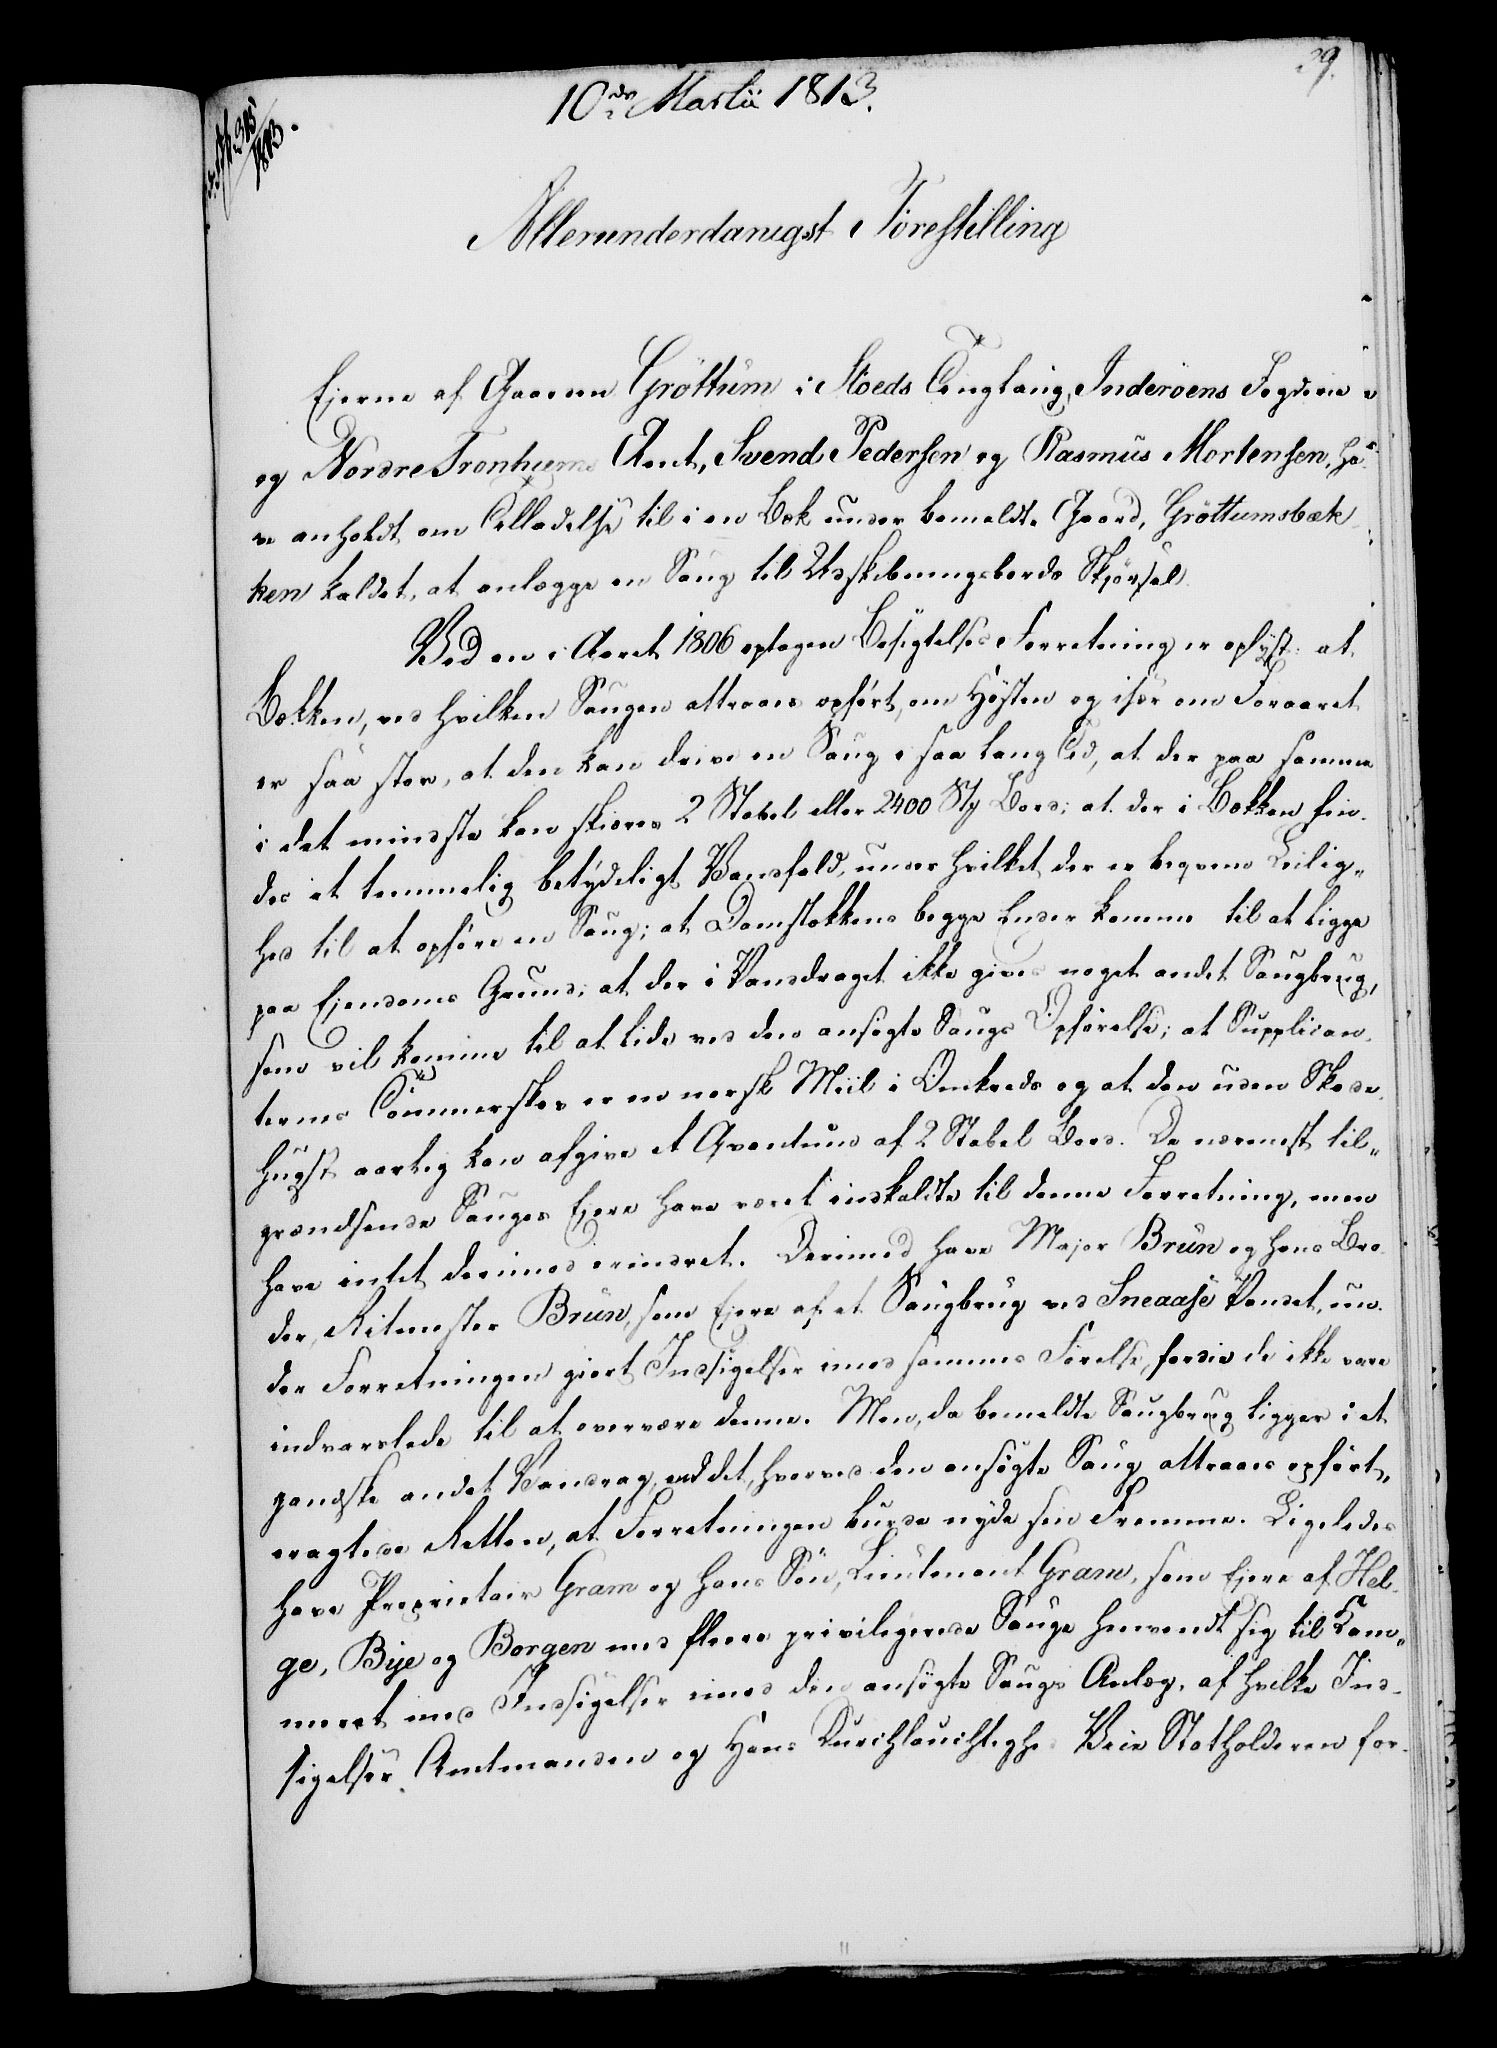 39.
10de Martii 1813.
315/1813.
Allerunderdanigst Forestilling
Ejerne af Gaarden Gröttum i Stoeds Tinglaug, Inderöens Fogderie
og Nordre Tronhiems Amt, Svend Pedersen og Rasmus Mortensen, ha-
ve anholdt om Tilladelse til i en Bæk under bemeldte Gaard, Gröttumsbæk
ken kaldet, at anlægge en Saug til Udskibningsbords Skjörsel.
Ved en i Aaret 1806 optagen Besigtelses Forretning er oplyst: at
Bækken, ved hvilken Saugen attraaes opfört, om Hösten og især om Foraaret
er saa stor, at den kan drive en Saug i saa lang Tid, at der paa samme
i det mindste kan skiæres 2 Stabel eller 2400 St Bord; at der i Bækken fin-
des et temmelig betydeligt Vandfald, under hvilket der er beqvem Leilig-
hed til at opföre en Saug; at Damstokkens begge Ender komme til at ligge
paa Ejendoms Grund; at der i Vandraget ikke gives noget andet Saugbrug,
som vil komme til at lide ved den ansögte Saugs Opförelse; at Supplican-
ternes Tömmerskov er en norsk Miil i Omkreds og at den uden Skove-
hugst aarlig kan afgive et Qvantum af 2 Stabel Bord. De nærmest til-
grændsende Sauges Ejere have været indkaldte til denne Forretning, men
have intet derimod erindret. Derimod have Major Brün og hans Bro-
der, Ritmester Brün, som Ejere af et Saugbrug ved Sneaase Vandet, un-
der Forretningen giort Indsigelser imod sammes Förelse, fordi de ikke vare
indvarslede til at overvære denne. Men, da bemeldte Saugbrug ligger i et
gandske andet Vandrag, end det, hvorved den ansögte Saug attraaes opfört,
eragtede Retten, at Forretningen burde nyde sin Fremme. Ligeledes
have Proprietair Gram og hans Sön, Lieutenant Gram, som Ejere af Hel-
ge, Bye og Borgen med flere privilegerede Sauge henvendt sig til Kam-
meret med Indsigelser imod den ansögte Saugs Anlæg, af hvilke Ind-
sigelser Amtmanden og Hans Durchlauchtighed Vice Statholderen for-